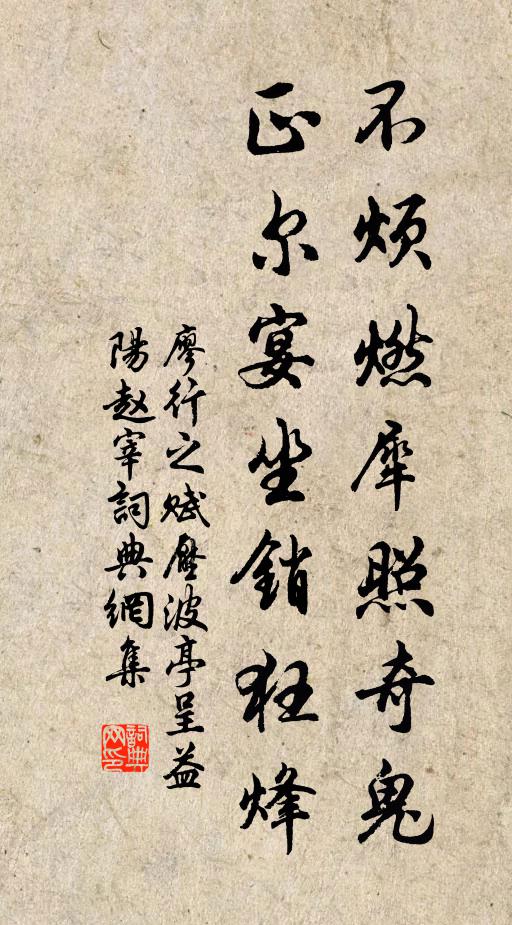 不烦燃犀照奇鬼
正尔宴坐销狂烽
廖行之赋壓波亭呈益
陽赵宰詞典網集
詞典
网印